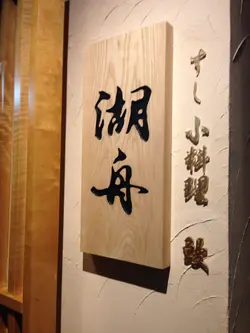 湖舟
すし 小料理 鰻